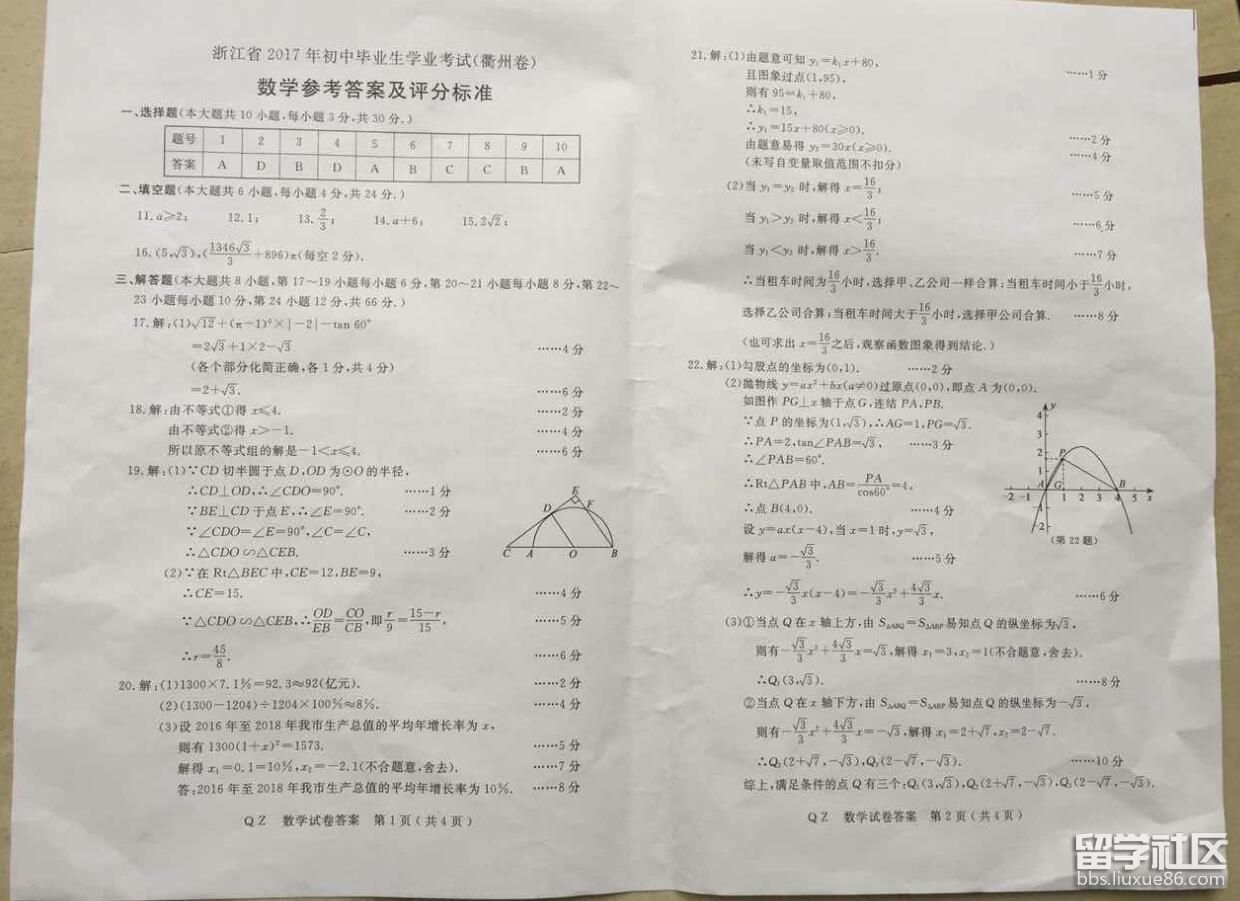 浙江省 2017 年初中毕业生学业考试(衢州卷)
数学参考答案及评分标准
一、选择题(本大题共 10 小题,每小题 3 分,共 30 分.)
题号 1 2 3 4 5 6 7 8 9 10
答案 A D B D A B C C B A
二、填空题(本大题共 6 小题,每小题 4 分,共 24 分.)
11.a≥2; 12.1; 13.2/3; 14.a+6; 15.2√2;
16.(5,√3),(1346√3/3+896)π(每空 2 分).
三、解答题(本大题共 8 小题,第 17～19 小题每小题 6 分,第 20～21 小题每小题 8 分,第 22～
23 小题每小题 10 分,第 24 小题 12 分,共 66 分.)
17.解:(1)√12+(π−1)⁰×|−2|−tan 60°
=2√3+1×2−√3 ……4 分
(各个部分化简正确,各 1 分,共 4 分)
=2+√3. ……6 分
18.解:由不等式①得 x≤4. ……2 分
由不等式②得 x>−1. ……4 分
所以原不等式组的解是−1<x≤4. ……6 分
19.解:(1)∵CD 切半圆于点 D,OD 为⊙O 的半径,
∴CD⊥OD,∴∠CDO=90°. ……1 分
∵BE⊥CD 于点 E,∴∠E=90°. ……2 分
∵∠CDO=∠E=90°,∠C=∠C,
∴△CDO∽△CEB. ……3 分
E
D
F
C A O B
(2)∵在 Rt△BEC 中,CE=12,BE=9,
∴CE=15. ……4 分
∵△CDO∽△CEB,∴OD/EB=CO/CB,即r/9=(15−r)/15, ……5 分
∴r=45/8. ……6 分
20.解:(1)1300×7.1%=92.3≈92(亿元). ……2 分
(2)(1300−1204)÷1204×100%≈8%. ……4 分
(3)设 2016 年至 2018 年我市生产总值的平均年增长率为 x,
则有 1300(1+x)²=1573. ……5 分
解得 x₁=0.1=10%,x₂=−2.1(不合题意,舍去). ……7 分
答:2016 年至 2018 年我市生产总值的平均年增长率为 10%. ……8 分
QZ 数学试卷答案 第 1 页(共 4 页)
21.解:(1)由题意可知 y₁=k₁x+80,
且图象过点(1,95), ……1 分
则有 95=k₁+80,
∴k₁=15,
∴y₁=15x+80(x≥0). ……2 分
由题意易得 y₂=30x(x≥0). ……4 分
(未写自变量取值范围不扣分)
(2)当 y₁=y₂ 时,解得 x=16/3; ……5 分
当 y₁>y₂ 时,解得 x<16/3; ……6 分
当 y₁<y₂ 时,解得 x>16/3. ……7 分
∴当租车时间为16/3小时,选择甲、乙公司一样合算;当租车时间小于16/3小时,
选择乙公司合算;当租车时间大于16/3小时,选择甲公司合算. ……8 分
(也可求出 x=16/3之后,观察函数图象得到结论.)
22.解:(1)勾股点的坐标为(0,1). ……2 分
(2)抛物线 y=ax²+bx(a≠0)过原点(0,0),即点 A 为(0,0).
如图作 PG⊥x 轴于点 G,连结 PA,PB.
∵点 P 的坐标为(1,√3),∴AG=1,PG=√3.
∴PA=2,tan∠PAB=√3, ……3 分
∴∠PAB=60°.
∴Rt△PAB 中,AB=PA/cos60°=4,
∴点 B(4,0). ……4 分
设 y=ax(x−4),当 x=1 时,y=√3,
解得 a=−√3/3. ……5 分
y
4
3
2
1
P
A G B
-2 -1 1 2 3 4 5 x
-2
(第 22 题)
∴y=−√3/3x(x−4)=−√3/3x²+4√3/3x. ……6 分
(3)①当点 Q 在 x 轴上方,由 S△ABQ=S△ABP易知点 Q 的纵坐标为√3,
则有−√3/3x²+4√3/3x=√3,解得 x₁=3,x₂=1(不合题意,舍去).
∴Q₁(3,√3). ……8 分
②当点 Q 在 x 轴下方,由 S△ABQ=S△ABP易知点 Q 的纵坐标为−√3,
则有−√3/3x²+4√3/3x=−√3,解得 x₁=2+√7,x₂=2−√7.
∴Q₂(2+√7,−√3),Q₃(2−√7,−√3). ……10 分
综上,满足条件的点 Q 有三个:Q₁(3,√3),Q₂(2+√7,−√3),Q₃(2−√7,−√3).
QZ 数学试卷答案 第 2 页(共 4 页)
留学社区
bbs.liuxue86.com